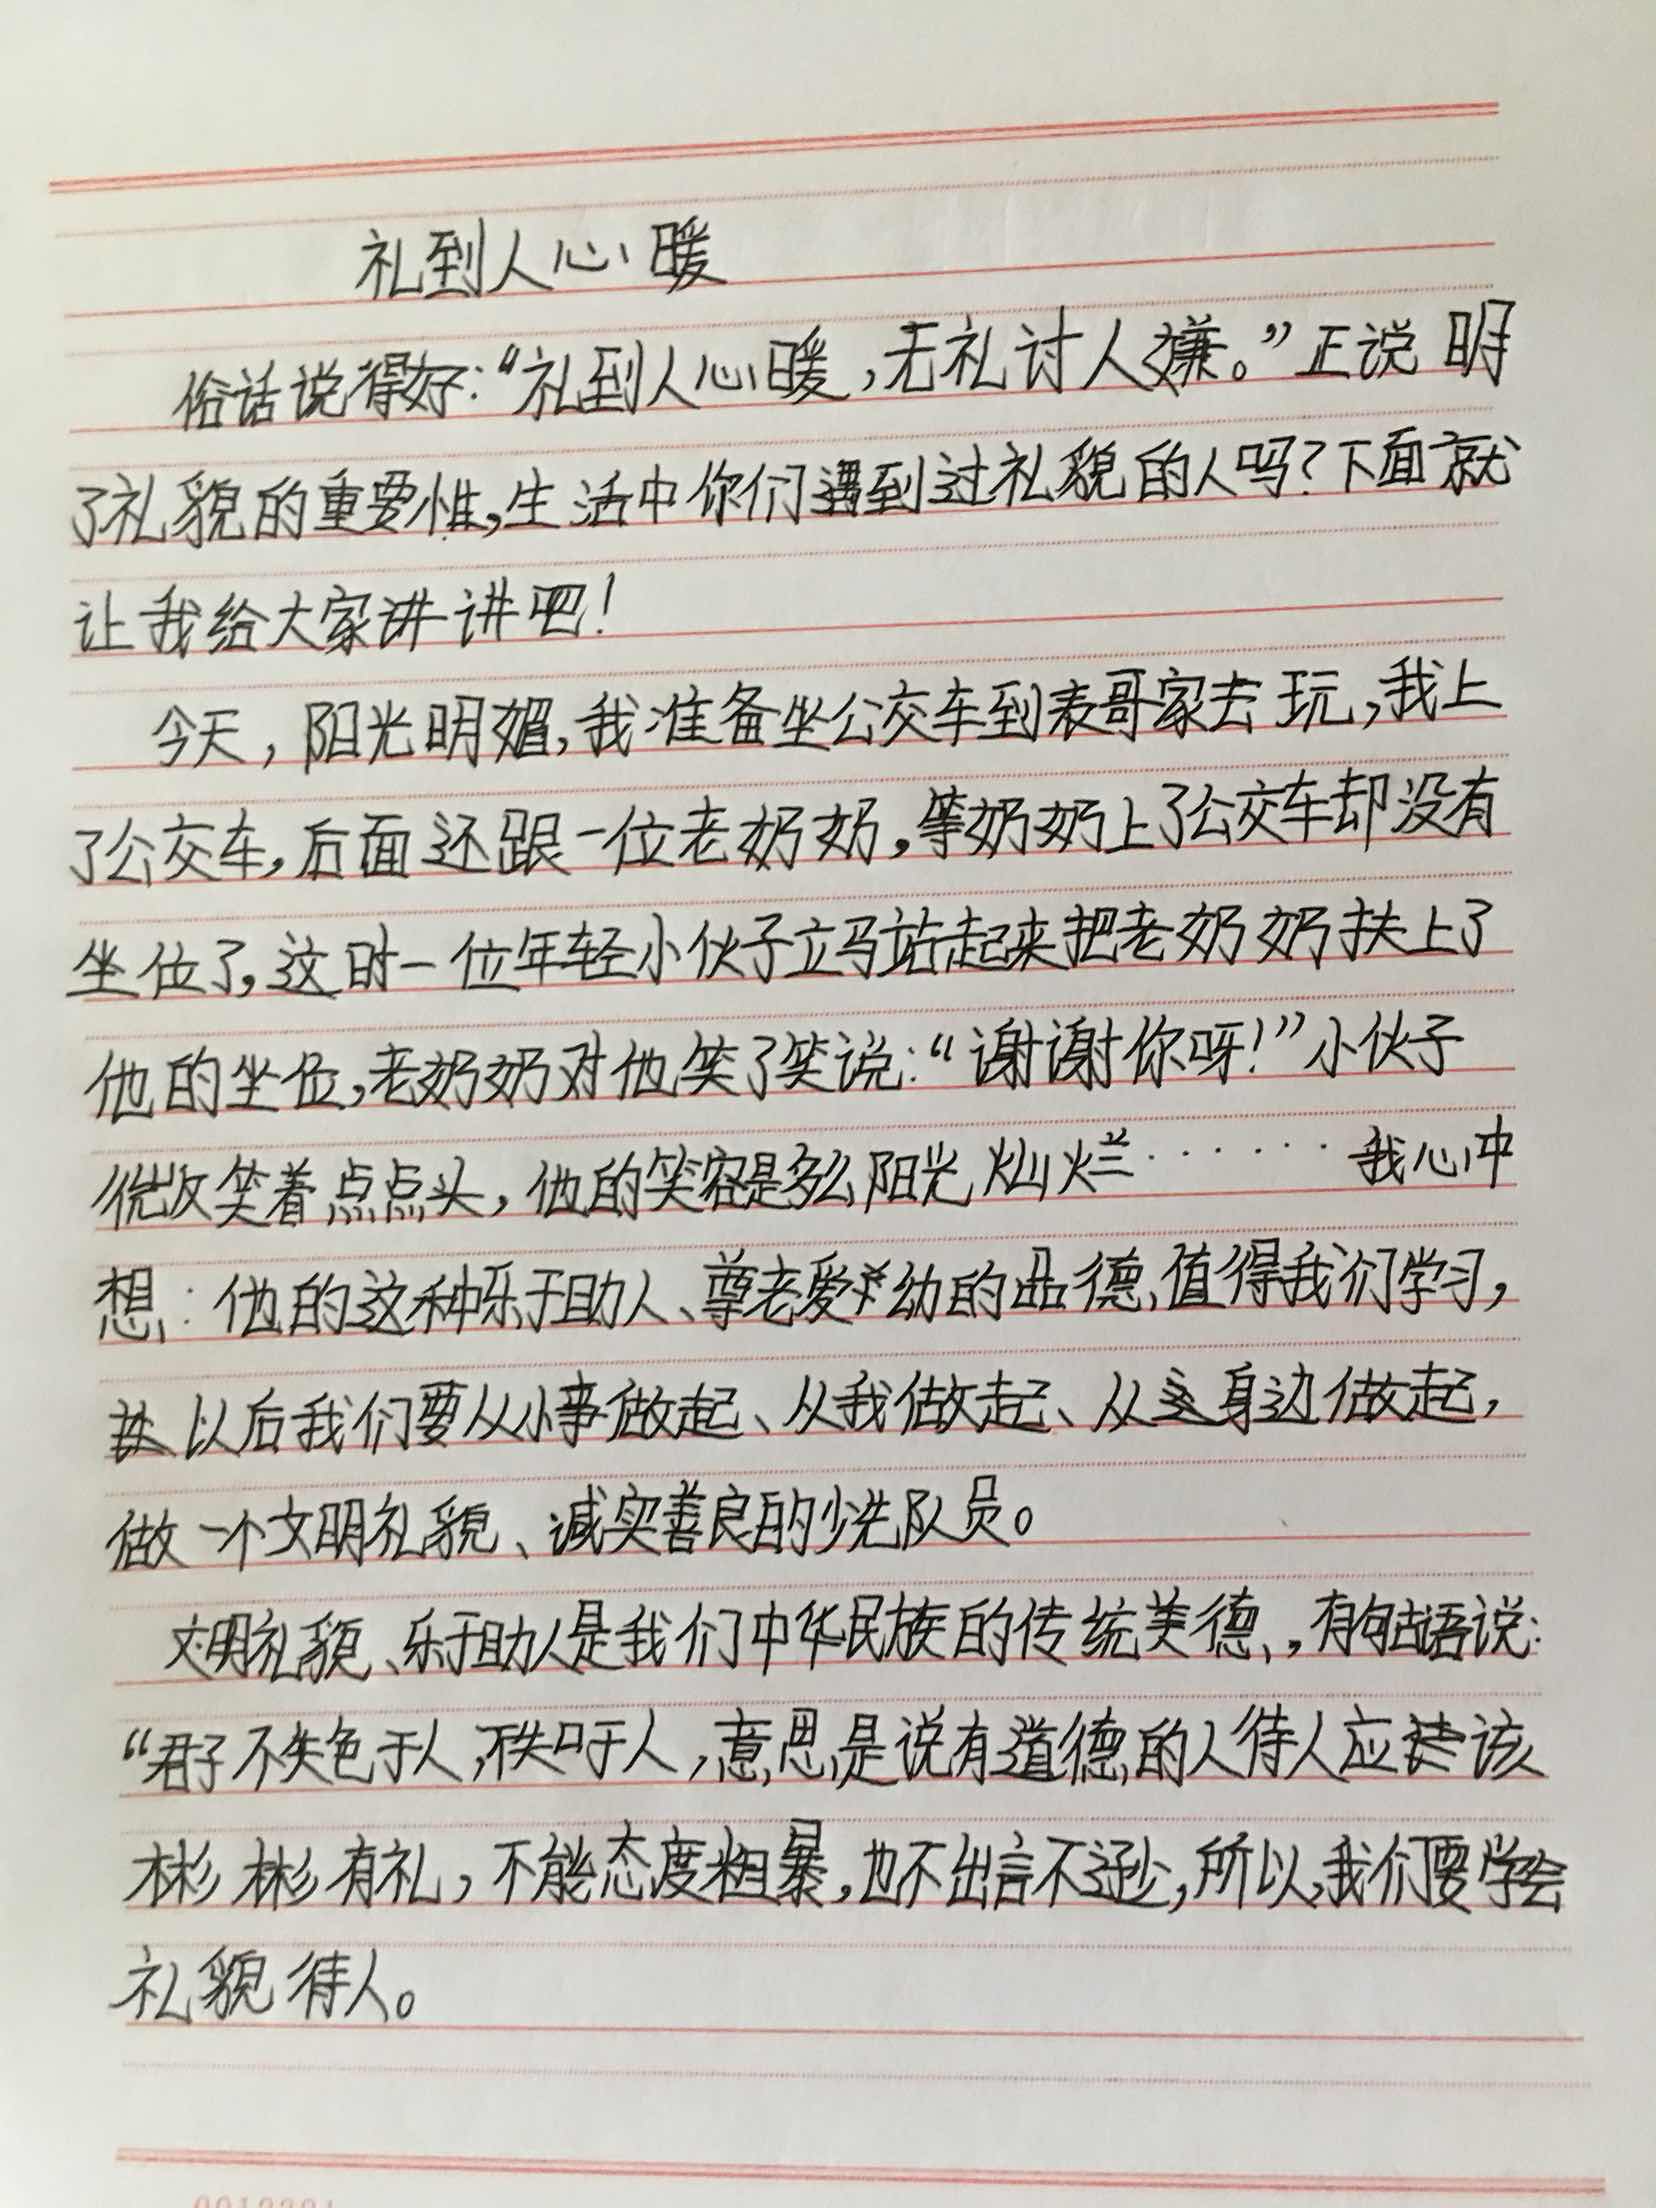 礼到人心暖
俗话说得好：“礼到人心暖，无礼讨人嫌。”正说明
了礼貌的重要性，生活中你们遇到过礼貌的人吗？下面就
让我给大家讲讲吧！
今天，阳光明媚，我准备坐公交车到表哥家去玩，我上
了公交车，后面还跟一位老奶奶，等奶奶上了公交车却没有
坐位了，这时一位年轻小伙子立马站起来把老奶奶扶上了
他的坐位，老奶奶对他笑了笑说：“谢谢你呀！”小伙子
微笑着点点头，他的笑容是多么阳光灿烂……我心中
想：他的这种乐于助人、尊老爱幼的品德值得我们学习，
以后我们要从小事做起、从我做起、从身边做起，
做一个文明礼貌、诚实善良的少先队员。
文明礼貌、乐于助人是我们中华民族的传统美德，有句古语说：
“君子不失色于人，不失口于人，意思是说有道德的人待人应该
彬彬有礼，不能态度粗暴，也不出言不逊，所以，我们要学会
礼貌待人。